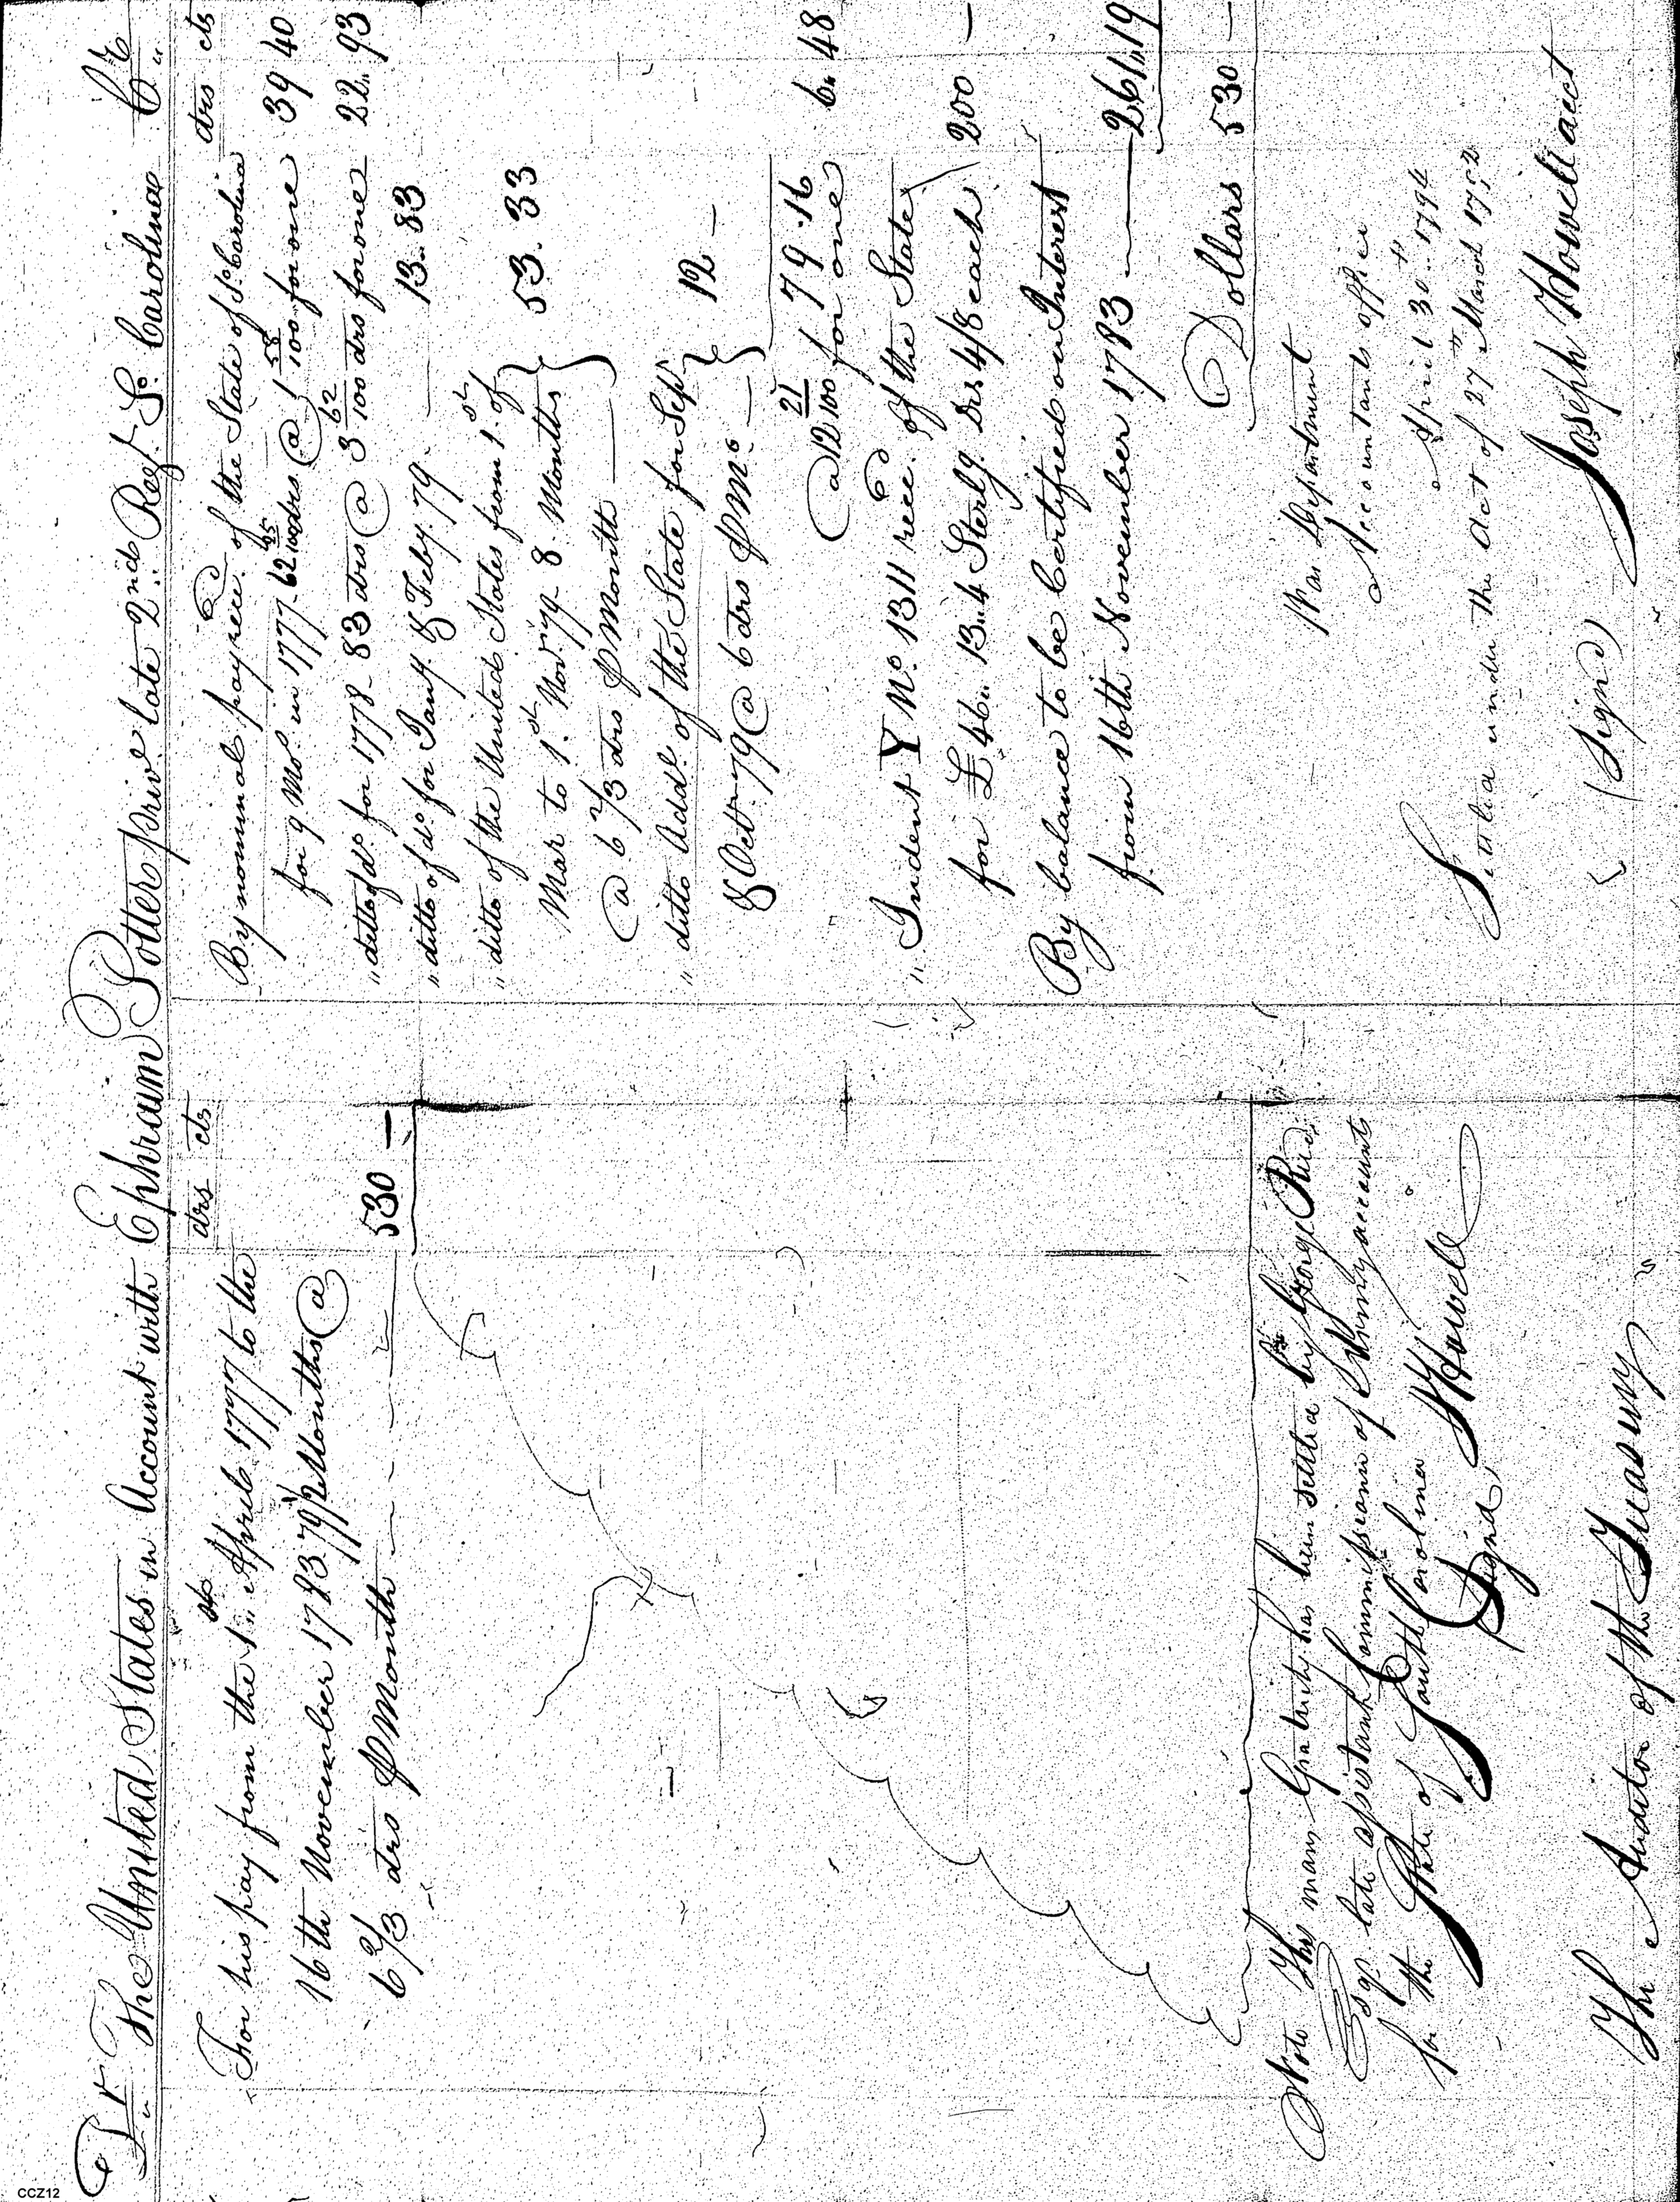 Dr The United States in Account with Ephraim Potter priv.e late 2nd Regt So Carolina Cr
drs cts
For his pay from the 1st April 1777 to the
16th November 1783 79 1/2 Months @
6 2/3 drs P Month 530 —
Note This mans Gratuity has been settled by George Reid
Esqr late assistant Commissioner of Army accounts
for the State of South Carolina
Signd, J Howell
The Auditor of the Treasury
drs cts
By nominal pay recd of the State of So Carolina
for 9 Mos in 1777 62 45/100 drs @ 1 58/100 for one 39 40
" ditto of do for 1778 83 drs @ 3 62/100 drs for one 22.. 93
" ditto of do for Jany & Feby 79 — 13.. 83
" ditto of the United States from 1st of
Mar to 1st Nov 1779 8 Months
@ 6 2/3 drs P Month — 53. 33
" ditto Addl of the State for Sepr
& Octr 79 @ 6 drs P Mo — 12 —
79.16
@ 12 21/100 for one 6.. 48
" Indent Y No 1311 recd of the State
for £ 46.. 13..4 Sterlg Drs 4/8 each 200 —
By balance to be Certified on Interest
from 16th November 1783 — 261..19
Dollars 530 —
War Department
Accountants office
April 30th 1794
Settled under the Act of 27th March 1792
(Signd) Joseph Howell acct
CCZ12